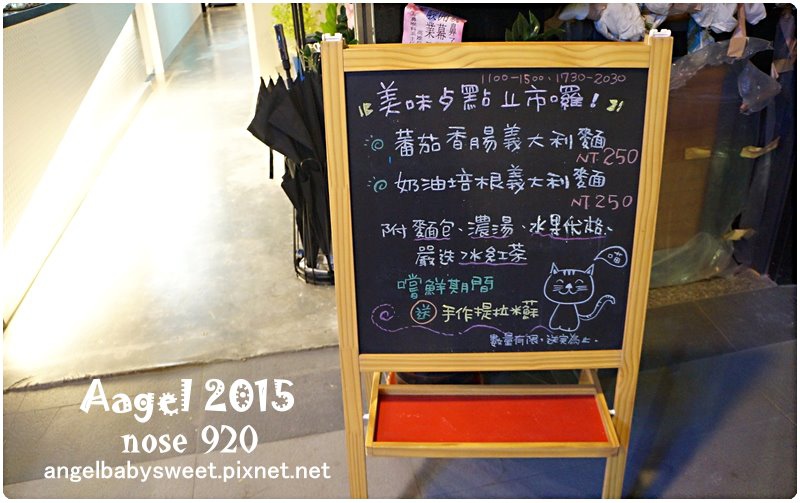 1100-1500、1730-2030
美味点點上市囉!
蕃茄香腸義大利麵
NT 250
奶油培根義大利麵
NT 250
附麵包、濃湯、水果優格、
嚴選冰紅茶
嚐鮮期間
送 手作提拉米蘇
喵
數量有限,送完為止。
Aagel 2015
nose 920
angelbabysweet.pixnet.net